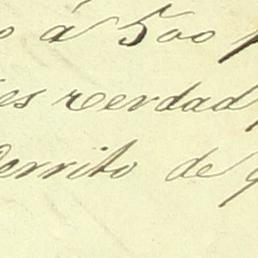 o á 500 p
es verdad
derrito de g